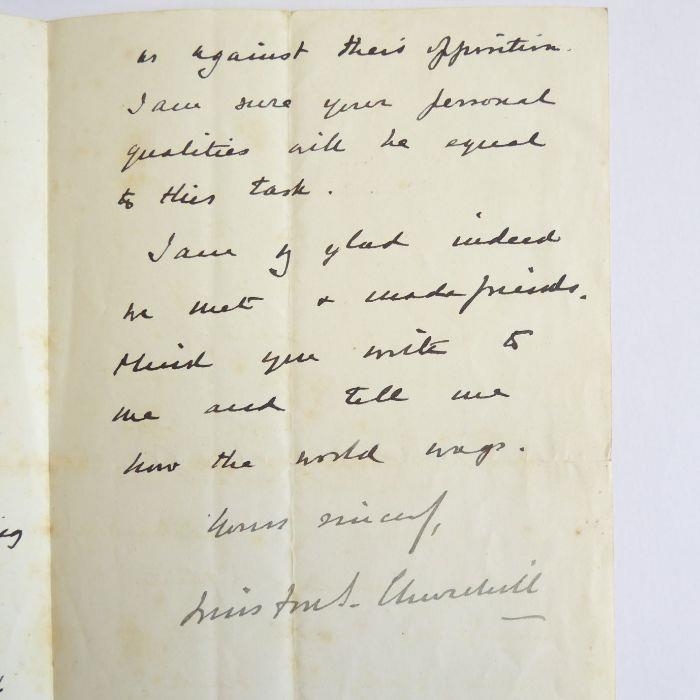 as against their opposition.
I am sure your personal
qualities will be equal
to this task.
I am vy glad indeed
we met & made friends.
Mind you write to
me and tell me
how the world wags.
Yours sincerely,
Winston S. Churchill